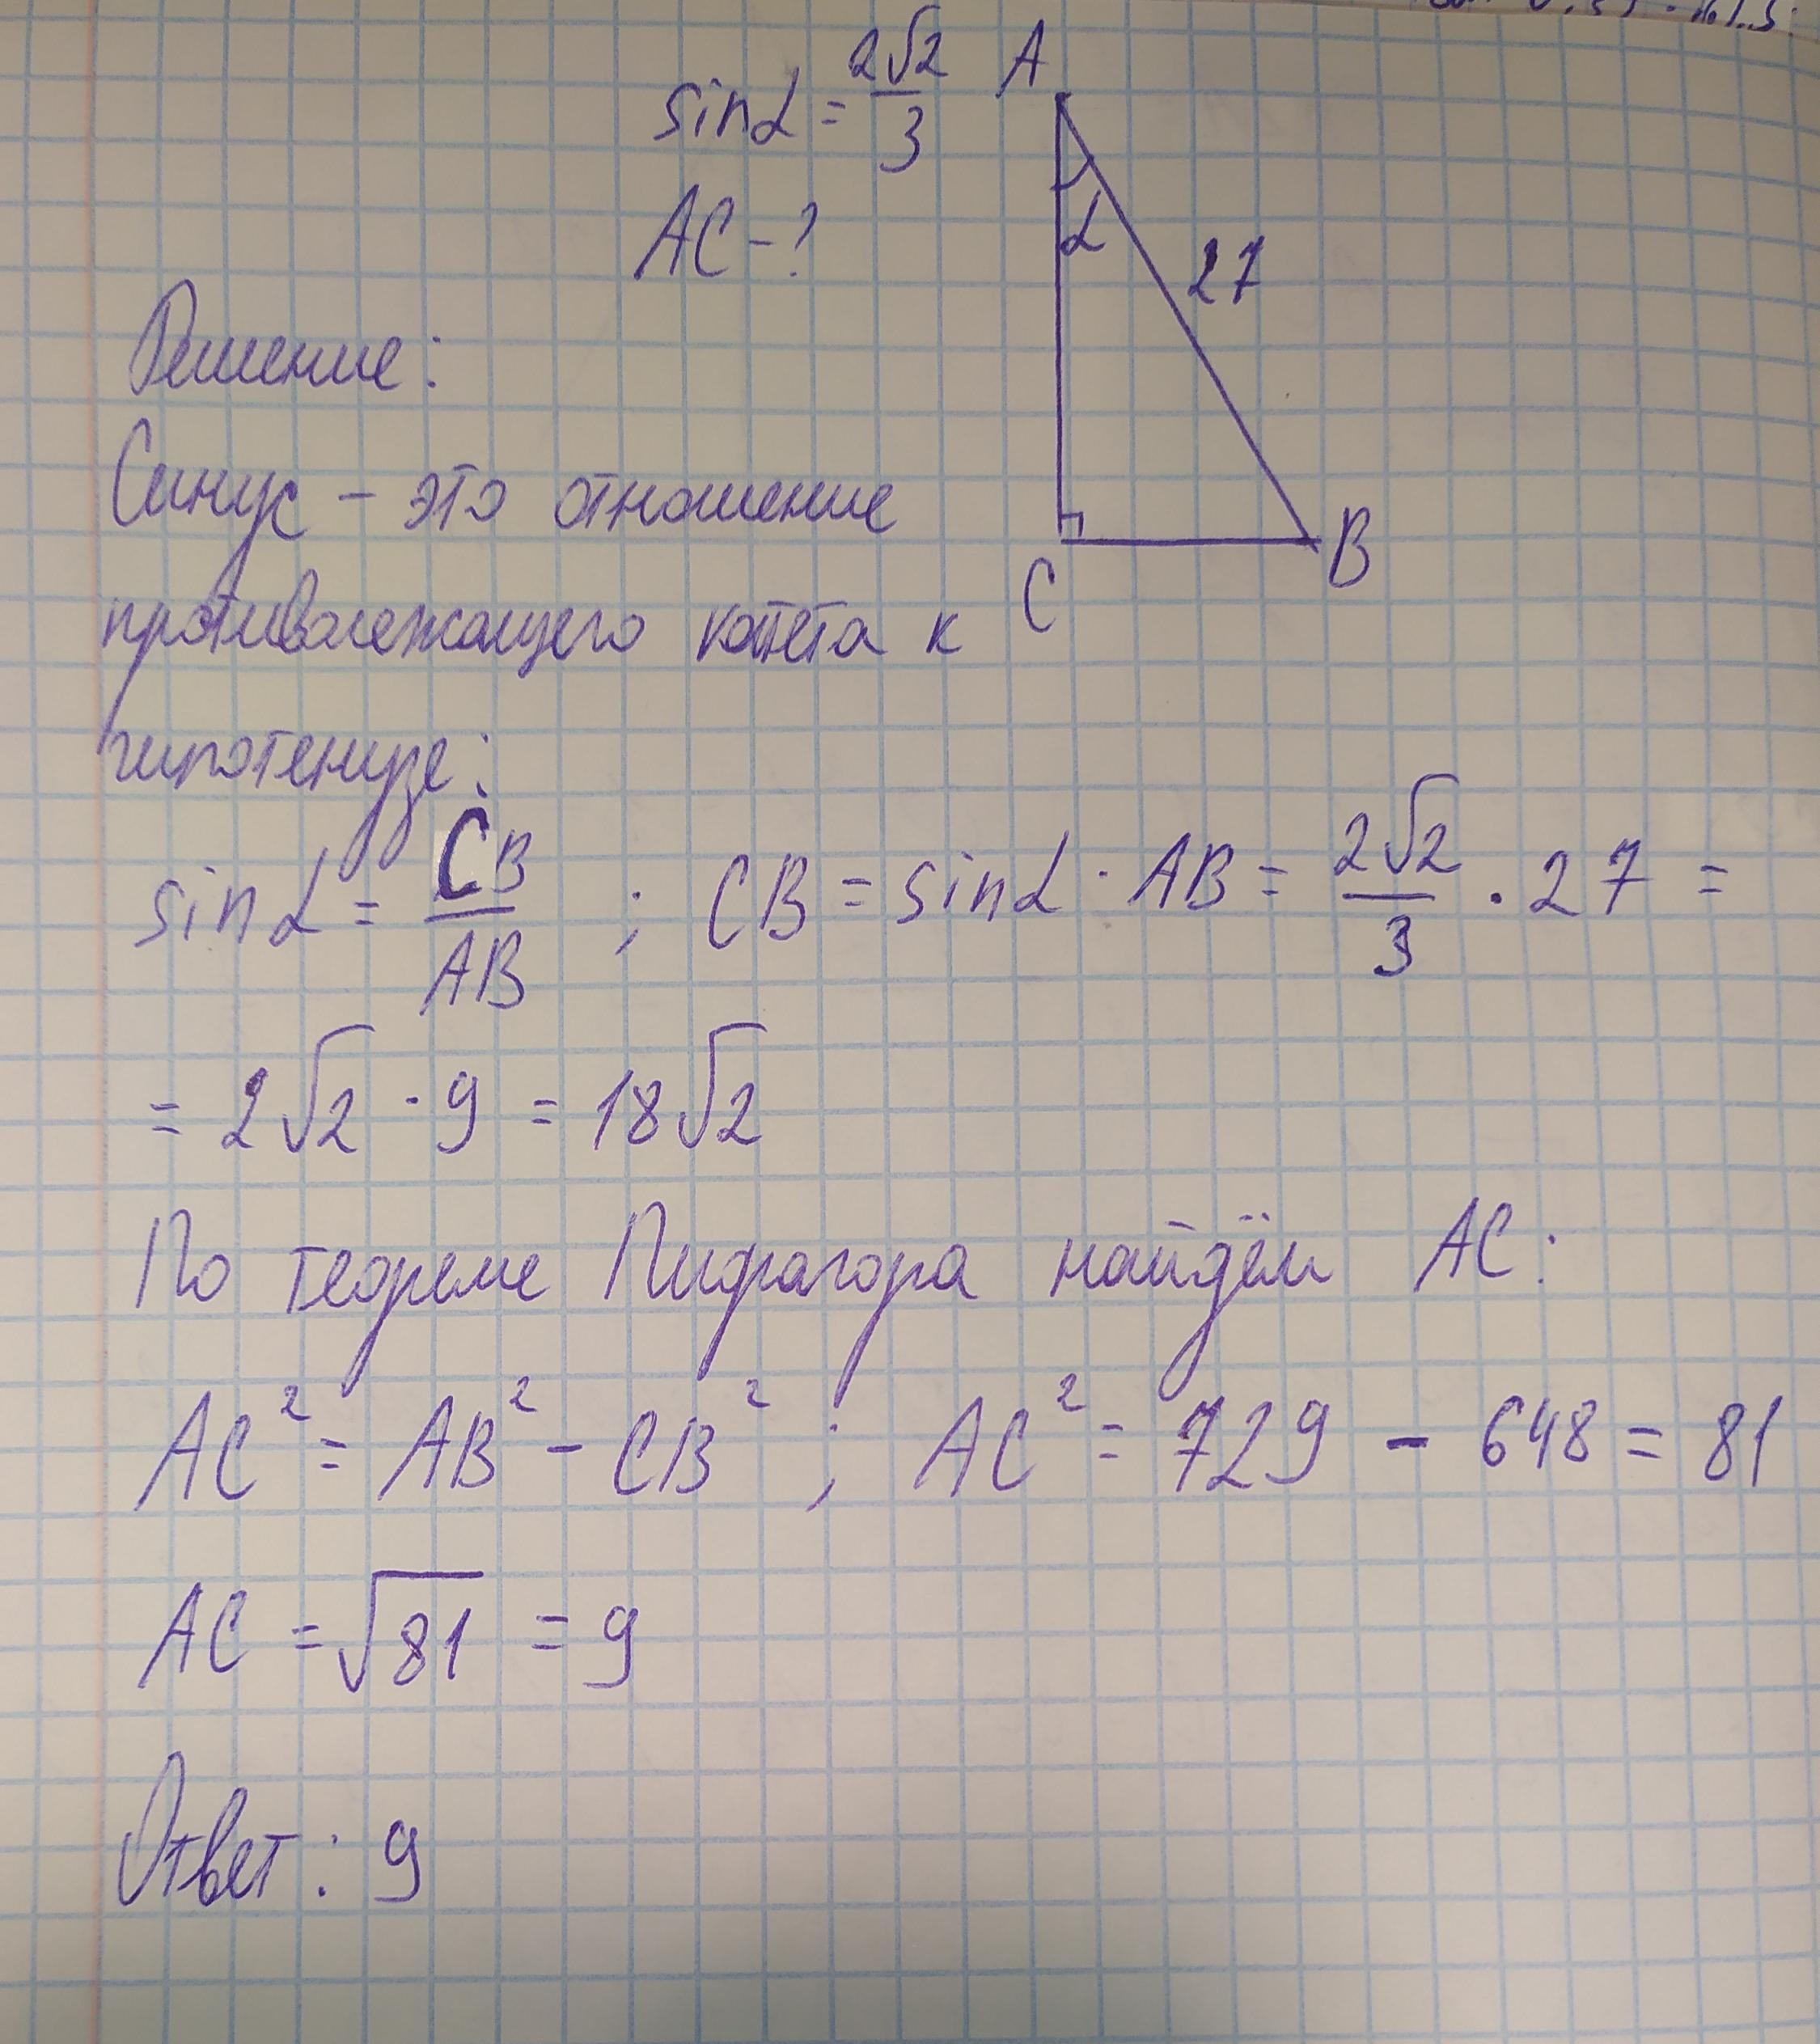 sinα = 2√2/3
AC - ?
A
α
27
C
B
Решение:
Синус - это отношение
противолежащего катета к
гипотенузе:
sinα = CB/AB ; CB = sinα · AB = 2√2/3 · 27 =
= 2√2 · 9 = 18√2
По теореме Пифагора найдём AC:
AC² = AB² - CB² ; AC² = 729 - 648 = 81
AC = √81 = 9
Ответ: 9